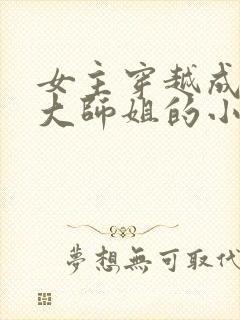 女主穿越成
大師姐的小
夢想無可取代